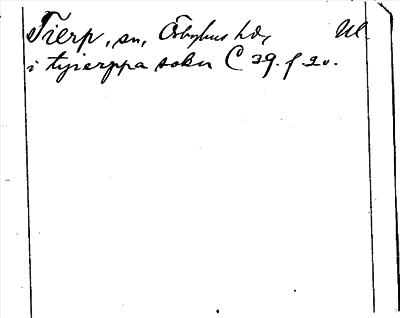 Tierp, sn, Örbyhus hd, Ul.
i tyierppa sokn C 39. f 20.